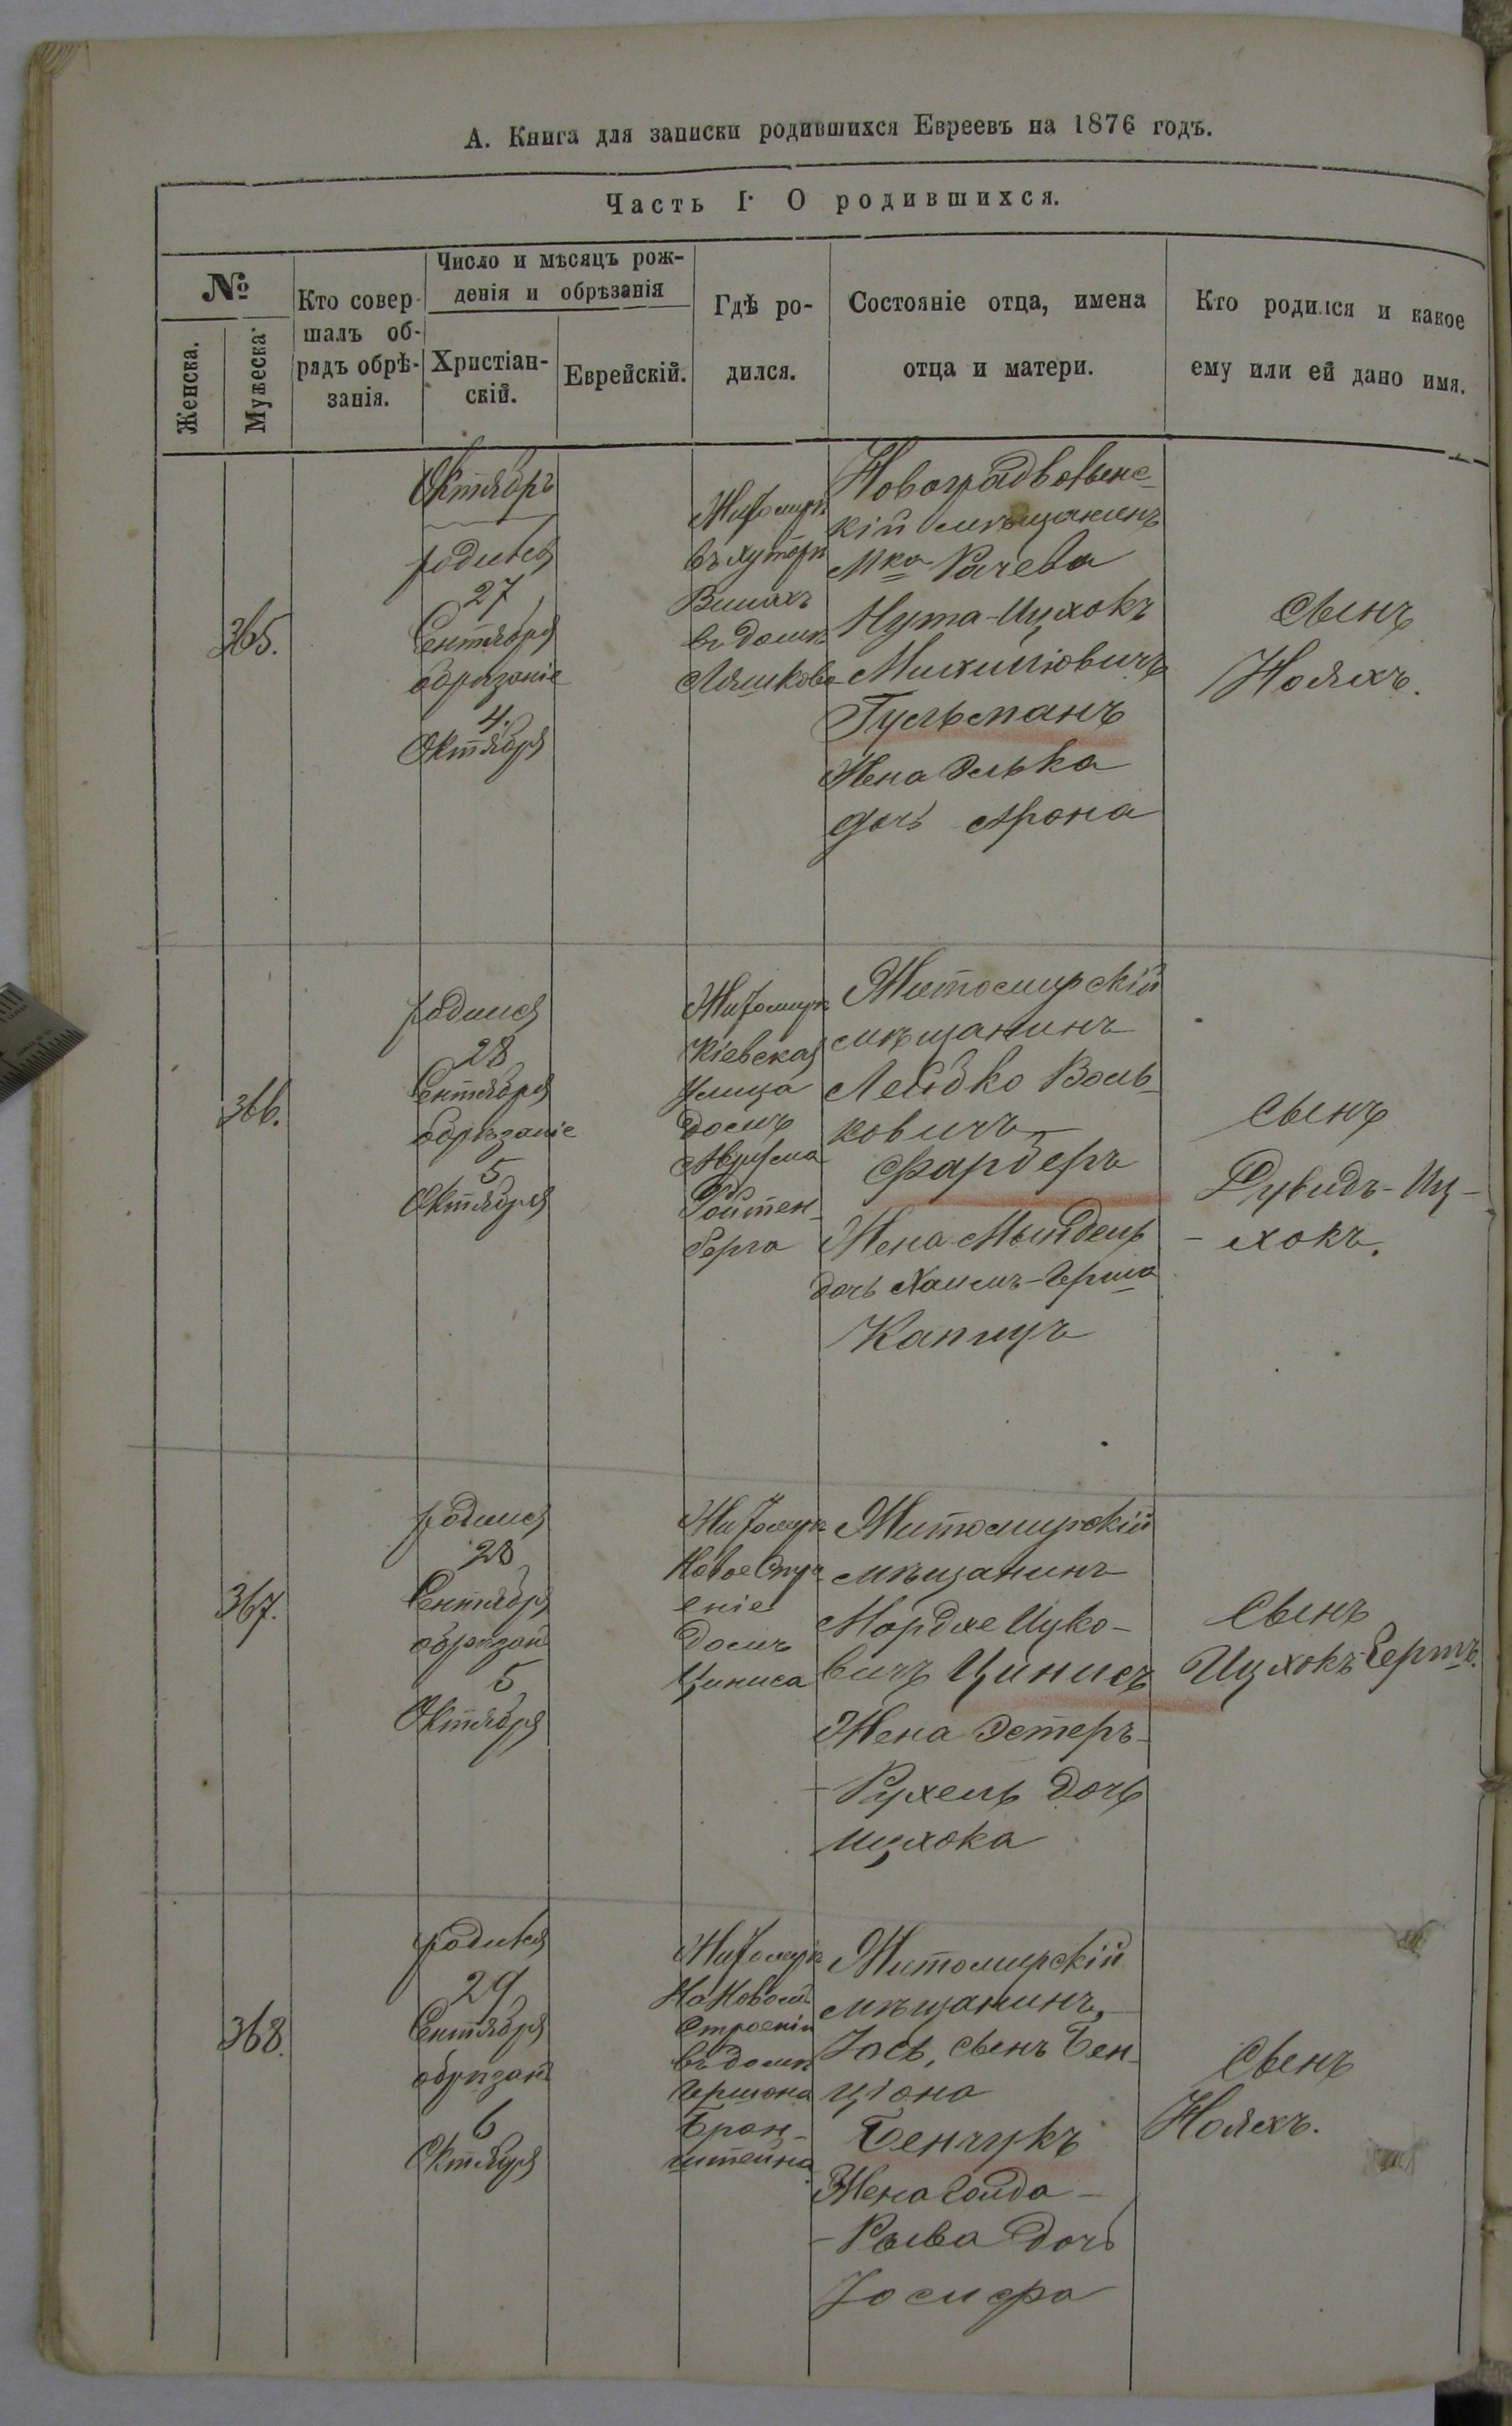 А. Книга для записки родившихся Евреевъ на 1876 годъ.
Часть I. О родившихся.
№
Женска.
Мужеска
Кто совер-
шалъ об-
рядъ обрѣ-
занія.
Число и мѣсяцъ рож-
денія и обрѣзанія
Христіан-
скій.
Еврейскій.
Гдѣ ро-
дился.
Состояніе отца, имена
отца и матери.
Кто родился и какое
ему или ей дано имя.
365.
Октябрь
родился
27
Сентября
обрѣзаніе
4.
Октября
Житомиръ
въ хуторѣ
въ домѣ
Ляшкова
Новоградволынс-
кій мѣщанинъ
Мка Рачева
Нута-Ицхокъ
Гусьманъ
Жена Элька
дочь Арона
Сынъ
Нояхъ.
366.
родился
28
Сентября
обрѣзаніе
5
Октября
Житомиръ
Кіевская
Улица
Домъ
Ройтен-
берга
Житомирскій
мѣщанинъ
Лейбко Воль-
ковичъ
Фарберъ
Жена Мындель
дочь Хаимъ-Герша
Капицъ
Сынъ
Дувидъ-Иц-
-хокъ.
367.
родился
28
Сентября
обрѣзан
5
Октября
Житомиръ
Новое Стро
еніе
Домъ
Циниса
Житомирскій
мѣщанинъ
Мордхе Ицко-
вичъ Цинисъ
Жена Эстеръ-
-Рухель дочь
Ицхока
Сынъ
Ицхокъ-Бертъ.
368.
родился
29
Сентября
обрѣзан
6
Октября
Житомиръ
На Новомъ
Строеніи
въ домѣ
Гершона
Брон-
штейна
Житомирскій
мѣщанинъ,
Іось, сынъ Бен-
ціона
Бенчукъ
Жена Гольда-
-Рыва дочь
Іосифа
Сынъ
Нояхъ.